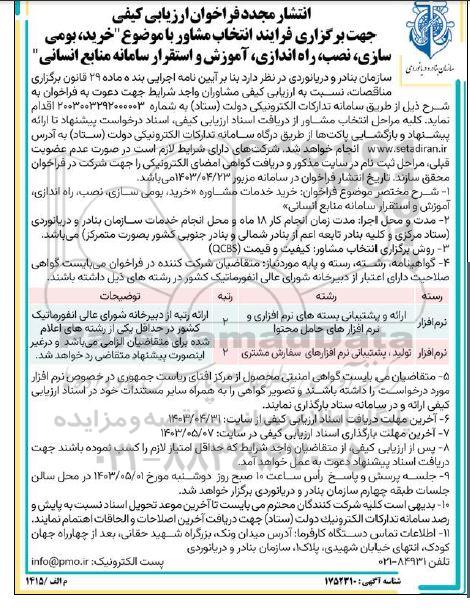 انتشار مجدد فراخوان ارزیابی کیفی
جهت برگزاری فرایند انتخاب مشاور با موضوع "خرید، بومی
سازی، نصب، راه اندازی، آموزش و استقرار سامانه منابع انسانی"
سازمان بنادر و دریانوردی
سازمان بنادر و دریانوردی در نظر دارد بنا بر آیین نامه اجرایی بند ه ماده ۲۹ قانون برگزاری
مناقصات، نسبت به ارزیابی کیفی مشاوران واجد شرایط جهت دعوت به فراخوان به
شرح ذیل از طریق سامانه تدارکات الکترونیکی دولت (ستاد) به شماره ۲۰۰۳۰۰۳۲۹۲۰۰۰۰۰۳ اقدام
نماید. کلیه مراحل انتخاب مشاور از دریافت اسناد ارزیابی کیفی، اسناد درخواست پیشنهاد تا ارائه
پیشنهاد و بازگشایی پاکت‌ها از طریق درگاه سامانه تدارکات الکترونیکی دولت (ستاد) به آدرس
www.setadiran.ir انجام خواهد شد. شرکت‌های دارای شرایط لازم است در صورت عدم عضویت
قبلی، مراحل ثبت نام در سایت مذکور و دریافت گواهی امضای الکترونیکی را جهت شرکت در فراخوان
محقق سازند. تاریخ انتشار فراخوان در سامانه مزبور ۱۴۰۳/۰۴/۲۳ می‌باشد.
۱- شرح مختصر موضوع فراخوان: خرید خدمات مشاوره «خرید، بومی سازی، نصب، راه اندازی،
آموزش و استقرار سامانه منابع انسانی»
۲- مدت و محل اجرا: مدت زمان انجام کار ۱۸ ماه و محل انجام خدمات سازمان بنادر و دریانوردی
(ستاد مرکزی و کلیه بنادر تابعه اعم از بنادر شمالی و بنادر جنوبی کشور بصورت متمرکز) می‌باشد.
۳- روش برگزاری انتخاب مشاور: کیفیت و قیمت (QCBS)
۴- گواهینامه، رشته، رسته و پایه موردنیاز: متقاضیان شرکت کننده در فراخوان می‌بایست گواهی
صلاحیت دارای اعتبار از دبیرخانه شورای عالی انفورماتیک کشور در رشته های ذیل داشته باشند
رسته رشته رتبه توضیحات
نرم افزار ارائه و پشتیبانی بسته های نرم افزاری و نرم افزار های حامل محتوا ۲
نرم افزار تولید و پشتیبانی نرم افزارهای سفارش مشتری ۲
ارائه رتبه از دبیرخانه شورای عالی انفورماتیک
کشور در حداقل یکی از رشته های اعلام
شده برای متقاضیان الزامی می‌باشد و درغیر
اینصورت پیشنهاد متقاضی رد خواهد شد.
۵- متقاضیان می بایست گواهی امنیتی محصول از مرکز افتای ریاست جمهوری در خصوص نرم افزار
مورد درخواست را داشته باشند و تصویر گواهی را به همراه سایر مستندات خود در اسناد ارزیابی
کیفی ارائه و در سامانه ستاد بارگذاری نمایند.
۶- آخرین مهلت دریافت اسناد ارزیابی کیفی از سایت: ۱۴۰۳/۰۴/۳۱
۷- آخرین مهلت بارگذاری اسناد ارزیابی کیفی در سایت: ۱۴۰۳/۰۵/۰۷
۸- پس از ارزیابی کیفی، از متقاضیان واجد شرایط که حداقل امتیاز لازم را کسب نموده باشند جهت
دریافت اسناد پیشنهاد دعوت به عمل خواهد آمد.
۹- جلسه پرسش و پاسخ رأس ساعت ۱۰ صبح روز دوشنبه مورخ ۱۴۰۳/۰۵/۰۱ در محل سالن
جلسات طبقه چهارم سازمان بنادر و دریانوردی برگزار خواهد شد.
۱۰- بدیهی است کلیه شرکت کنندگان محترم می بایست تا آخرین موعد تحویل اسناد نسبت به پایش و
رصد سامانه تدارکات الکترونیک دولت (ستاد) جهت دریافت آخرین اصلاحات و الحاقات اهتمام نمایند.
۱۱- اطلاعات تماس دستگاه کارفرما: آدرس میدان ونک، بزرگراه شهید حقانی، بعد از چهارراه جهان
کودک، انتهای خیابان شهیدی، پلاک۱، سازمان بنادر و دریانوردی
تلفن ۸۴۹۳۱-۰۲۱ پست الکترونیک: info@pmo.ir
شناسه آگهی: ۱۷۵۲۳۱۰ م الف /۱۴۱۵